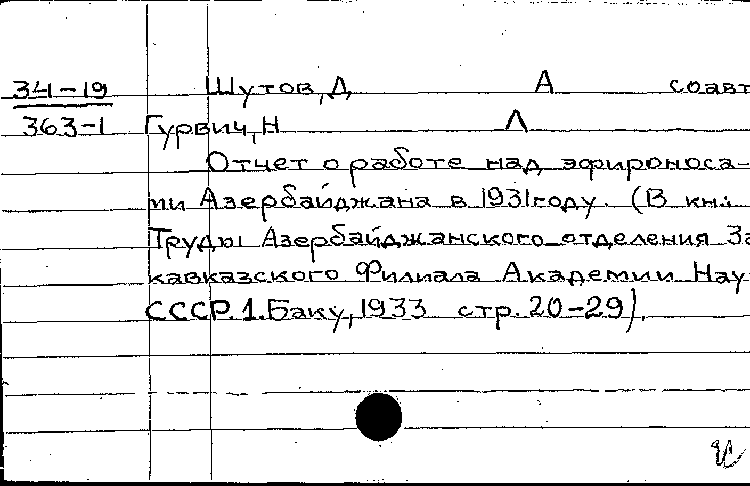 34-19 Шутов, Д А соавт
363-1 Гурвич, Н Л
Отчет о работе над эфироноса-
ми Азербайджана в 1931 году. (В кн:
Труды Азербайджанского отделения За
кавказского Филиала Академии Нау
СССР. 1. Баку, 1933 стр. 20-29).